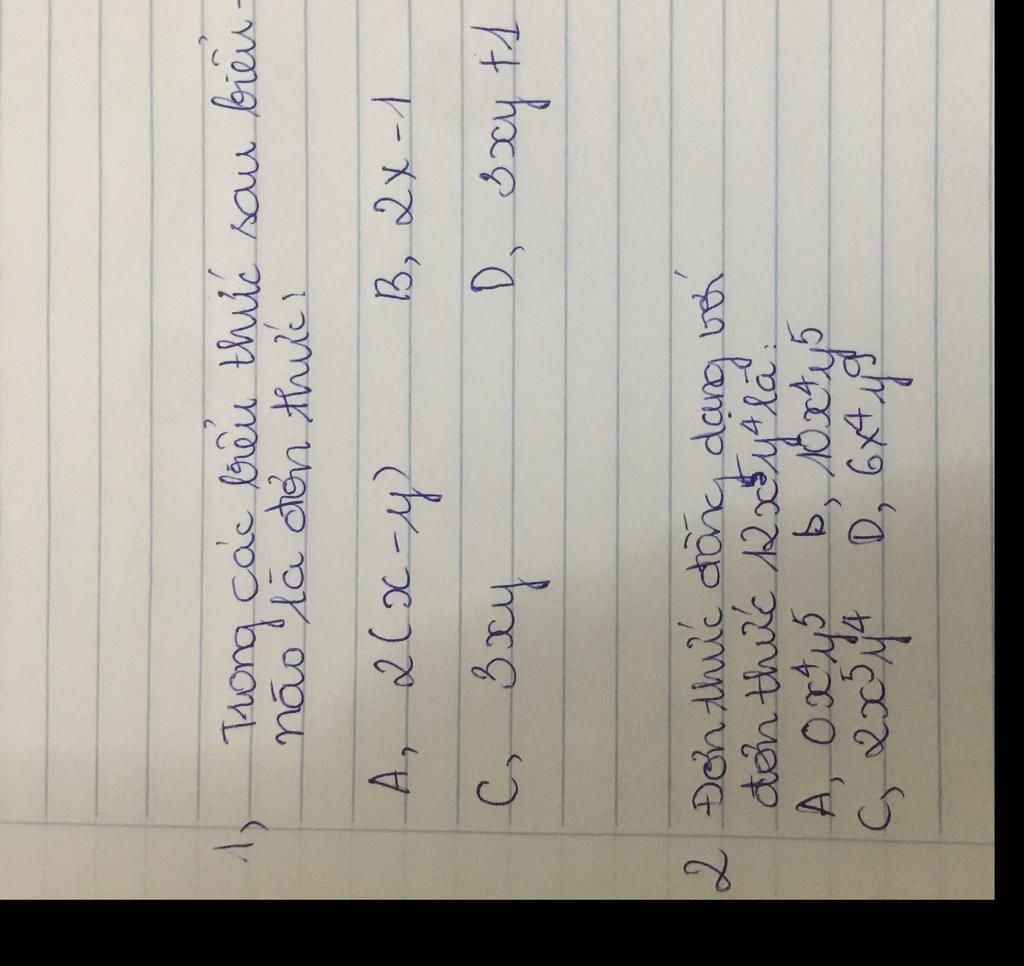 1, Trong các biểu thức sau biểu-
nào là đơn thức:
A, 2(x-y) B, 2x-1
C, 3xy D, 3xy+1
2 Đơn thức đồng dạng với
đơn thức 12x⁵y⁴ là:
A, 0x⁴y⁵ b, 10x⁴y⁵
C, 2x⁵y⁴ D, 6x⁴y⁹